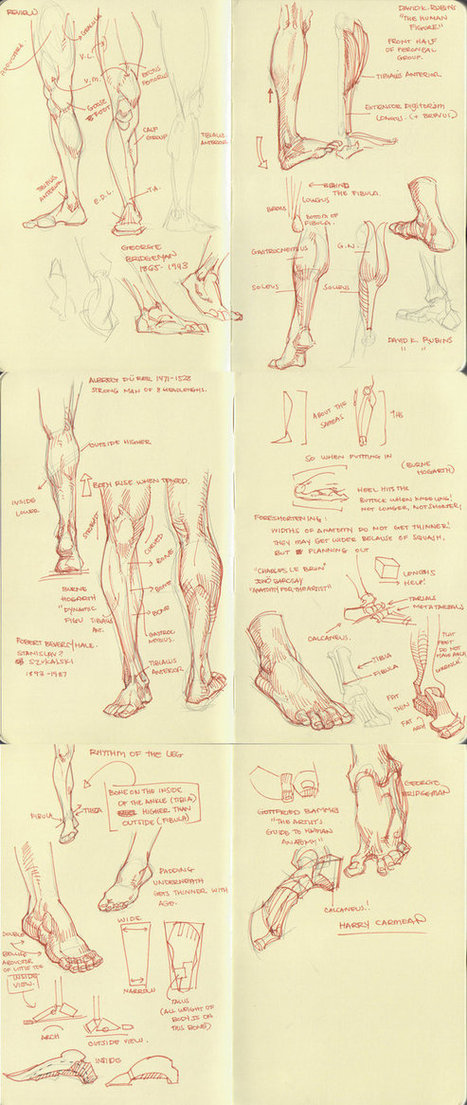 REVIEW
V.L.
V.M.
CALF
GROUP
TIBIALIS
ANTERIOR
TIBIALIS
ANTERIOR
E.D.L.
T.A.
GEORGE
BRIDGEMAN
1865-1943
DAVID K. RUBINS
"THE HUMAN
FIGURE"
FRONT HALF
OF PERONEAL
GROUP.
TIBIALIS ANTERIOR.
EXTENSOR DIGITORUM
LONGUS. (+ BREVIS)
BEHIND
THE FIBULA.
LONGUS
BREVIS
BOTTOM OF
FIBULA.
GASTROCNEMIUS
G.N.
SOLEUS
SOLEUS
DAVID K. RUBINS
" "
ALBRECHT DÜRER 1471-1528
STRONG MAN OF 8 HEADLENGTHS.
OUTSIDE HIGHER
INSIDE
LOWER
BOTH RISE WHEN
CURVED
BONE
BONE
BONE
BURNE
HOGARTH
"DYNAMIC
TIBIALIS
ANT.
GASTROC
NEMIUS.
TIBIALIS
ANTERIOR.
ROBERT BEVERLY HALE.
STANISLAV
SZUKALSKI
1893-1987
ABOUT THE
SAME
SO WHEN PUTTING IN
(BURNE
HOGARTH)
HEEL HITS THE
BUTTOCK WHEN KNEELING!
NOT LONGER, NOT SHORTER!
FORESHORTENING!
WIDTHS OF ANATOMY DO NOT GET THINNER!
THEY MAY GET WIDER BECAUSE OF SQUASH,
BUT PLANNING OUT
LENGTHS
HELP!
"CHARLES LE BRUN"
JENÖ BARCSAY
"ANATOMY FOR THE ARTIST"
TARSALS
METATARSALS
CALCANEUS.
TIBIA
FIBULA
FLAT
FEET
DO NOT
HAVE ARCH
FAT
THIN
FAT
RHYTHM OF THE LEG
FIBULA
TIBIA
BONE ON THE INSIDE
OF THE ANKLE (TIBIA)
HIGHER THAN
OUTSIDE (FIBULA)
PADDING
UNDERNEATH
GETS THINNER WITH
AGE.
DOUBLE
BELLIED
ABDUCTOR
OF LITTLE TOE
WIDE
NARROW
TALUS
(ALL WEIGHT OF
BODY IS ON
THIS BONE)
INSIDE
VIEW.
ARCH
OUTSIDE VIEW.
INSIDE
GOTTFRIED BAMMES
"THE ARTIST'S
GUIDE TO HUMAN
ANATOMY"
GEORGE
BRIDGEMAN
CALCANEUS!
HARRY CARMEAN